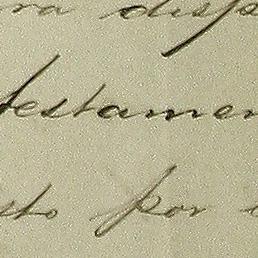 ra disp
testamen
sto por